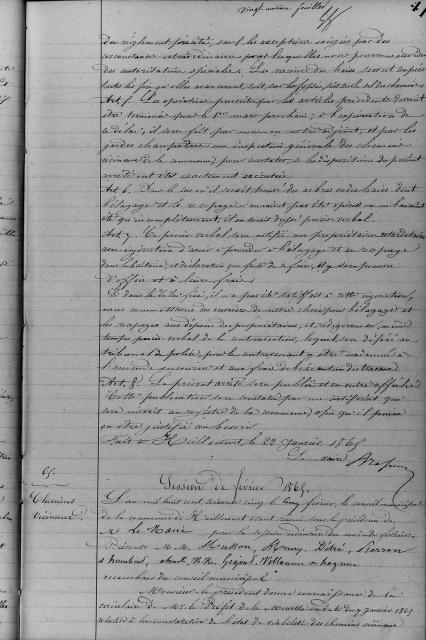 vingt unième feuillet
41
du règlement précité, sauf les exceptions exigées par des
circonstances extraordinaires pour lesquelles nous pourrons accorder
des autorisations spéciales. Les racines des haies seront coupées
toutes les fois qu'elles avanceront, soit sur les fossés, soit sur le sol du chemin.
Art. 5. Les opérations prescrites par les articles précédents devront
être terminées pour le 1er mars prochain; à l'expiration de
ce délai, il sera fait par nous ou notre adjoint, et par les
gardes champêtres une inspection générale des chemins
vicinaux de la commune, pour constater si les dispositions du présent
arrêté ont été exactement exécutées.
Art. 6. Dans le cas où il serait trouvé des arbres ou des haies dont
l'élagage et le recepage n'auraient pas été opérés ou ne l'auraient
été qu'incomplètement, il en serait dressé procès verbal.
Art. 7. Ce procès verbal sera notifié aux propriétaires retardataires
avec injonction d'avoir à procéder à l'élagage et au recepage
dans la huitaine, et déclaration que faute de le faire, il y sera pourvu
d'office et à leurs frais.
Si dans le délai fixé, il n'a pas été satisfait à cette injonction,
nous commettrons des ouvriers de notre choix pour l'élagage et
les recepages aux dépens des propriétaires, et rédigerons en même
temps procès verbal de la contravention, lequel sera déféré au
tribunal de police, pour le contrevenant y être condamné à
l'amende encourue et aux frais de l'exécution des travaux.
Art. 8. Le présent arrêté sera publié et en outre affiché.
Cette publication sera constatée par un certificat qui
sera inscrit au registre de la commune, afin qu'il puisse
en être justifié au besoin.
Fait à Haillicourt, le 22 janvier 1865
Le Maire
65.
Chemins
vicinaux.
Session de février 1865.
L'an mil huit cent soixante cinq le cinq février, le conseil municipal
de la commune de étant réuni sous la présidence de
Mr Le Maire pour la session ordinaire du mois de février.
Présents M.M. Husson, Henry, Détré, Pierron
membres du conseil municipal
Monsieur le président donne connaissance de la
circulaire de Mr le Préfet de la Meurthe en date du 9 janvier 1865
relative à la constatation de l'état de viabilité des chemins vicinaux